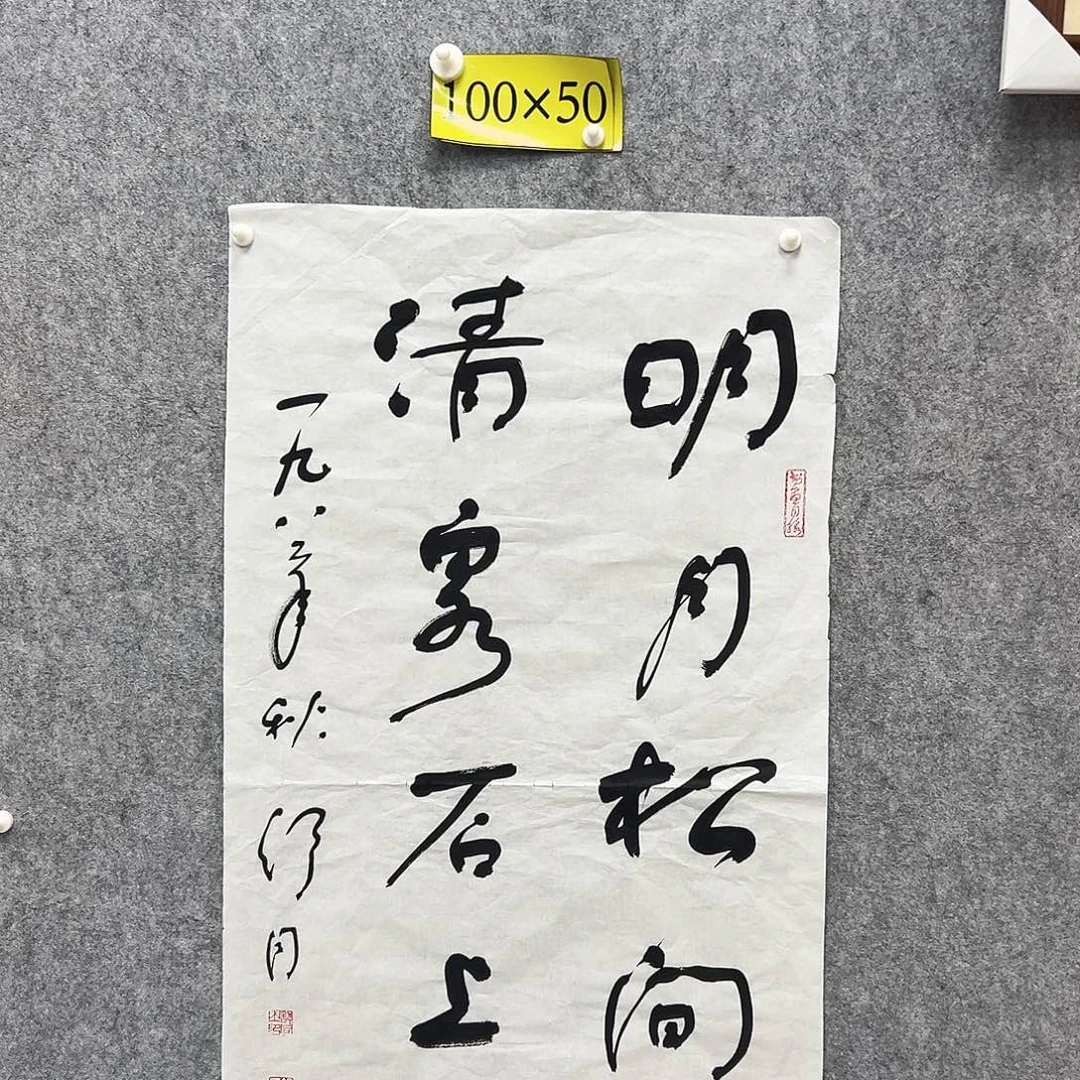 100×50
明月松間
清泉石上
一九八二年秋